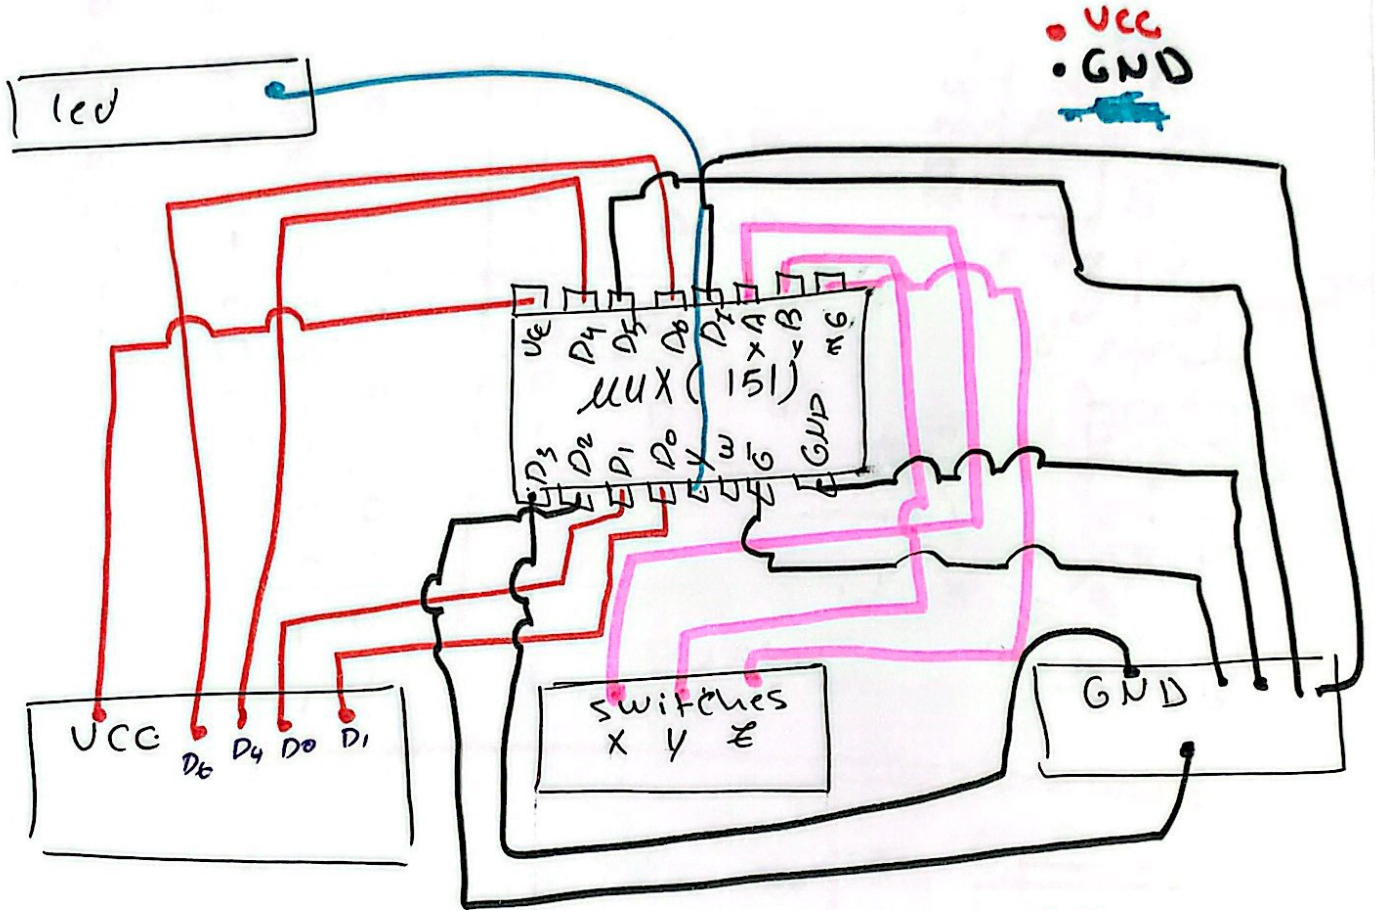 VCC
GND
led
VCC D4 D5 D6 D7 A B
X Y
MUX (151)
D3 D2 D1 D0 Y W G GND
VCC D6 D4 D0 D1
switches
X Y Z
GND